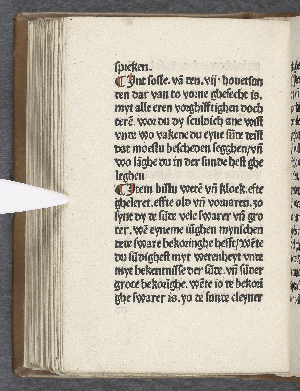 spreken.
¶ Int soste. vā den. vij. hovetsun
den dar van to vorne ghesecht is.
myt alle eren vorghifftighen doch
teren. wor du dy sculdich ane wist
unde wo vakene du eyne sūde deist
dat moestu bescheden segghen / vn̄
wo lāghe du in der sunde hest ghe
leghen
¶ Item bistu wete vn̄ kloek. efte
gheleret. efte old vn̄ vornaren. so
synt dy de sūde vele swarer vn̄ gro
ter. wē eyneme iūghen mynschen
de de sware bekoringhe hefft / wēte
du sūdighest myt wetenheyt vnde
myt bekentnisse der sūde. vn̄ sūder
grote bekorīghe. wēte io de bekorī
ghe swarer is. yo de sunde cleyner